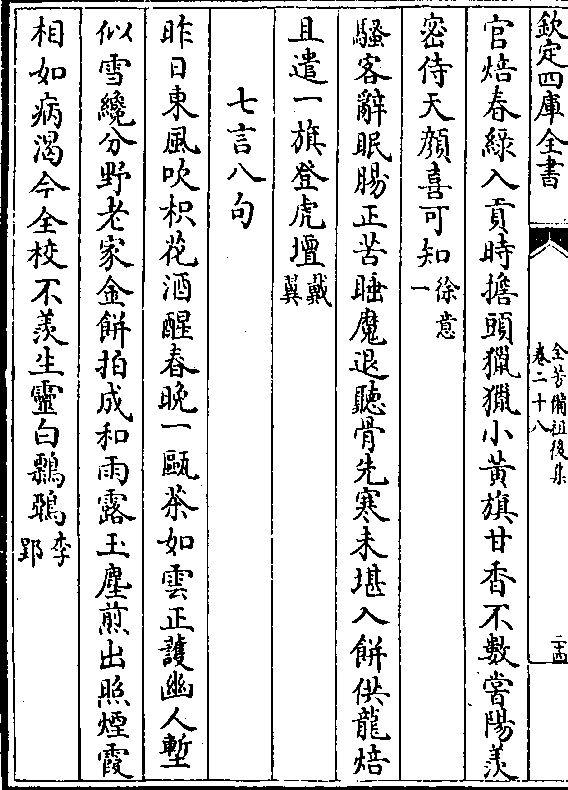 欽定四庫全書
全芳備祖後集
卷二十八
二十四
官焙春綠入貢時擔頭獵獵小黃旗甘香不數當陽羨
密侍天顔喜可知徐意一
騷客辭眠腸正苦睡魔退聽骨先寒未堪入餅供龍焙
且遣一旗登虎壇戴翼
七言八句
昨日東風吹枳花酒醒春晚一甌茶如雲正護幽人塹
似雪纔分野老家金餅拍成和雨露玉塵煎出照煙霞
相如病渴今全校不羨生靈白鵶李郢